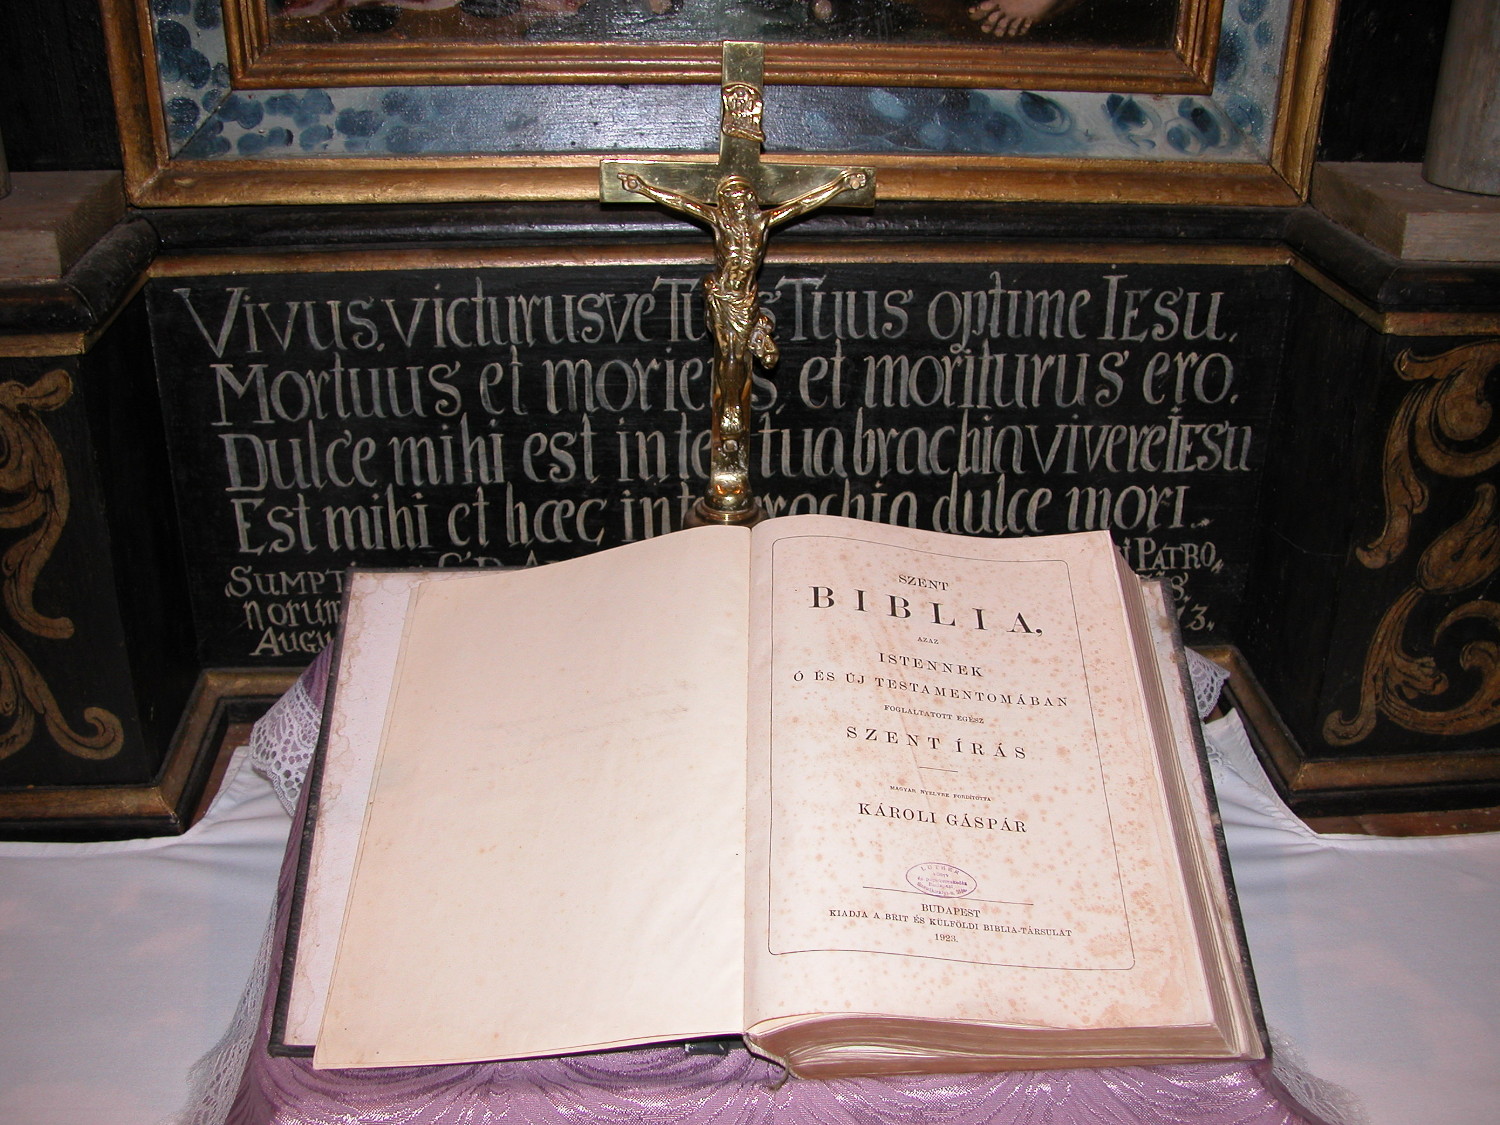 Vivus, victurusve Tuus Tuus optime IESu,
Mortuus et moriens, et moriturus ero.
Dulce mihi est inter tua brachia vivere IESu
Est mihi et hæc inter brachia dulce mori.
SUMPT
PATRO,
norum
AUGU
SZENT
BIBLIA,
AZAZ
ISTENNEK
Ó ÉS ÚJ TESTAMENTOMÁBAN
FOGLALTATOTT EGÉSZ
SZENT ÍRÁS
MAGYAR NYELVRE FORDÍTOTTA
KÁROLI GÁSPÁR
BUDAPEST
KIADJA A BRIT ÉS KÜLFÖLDI BIBLIA-TÁRSULAT
1923.